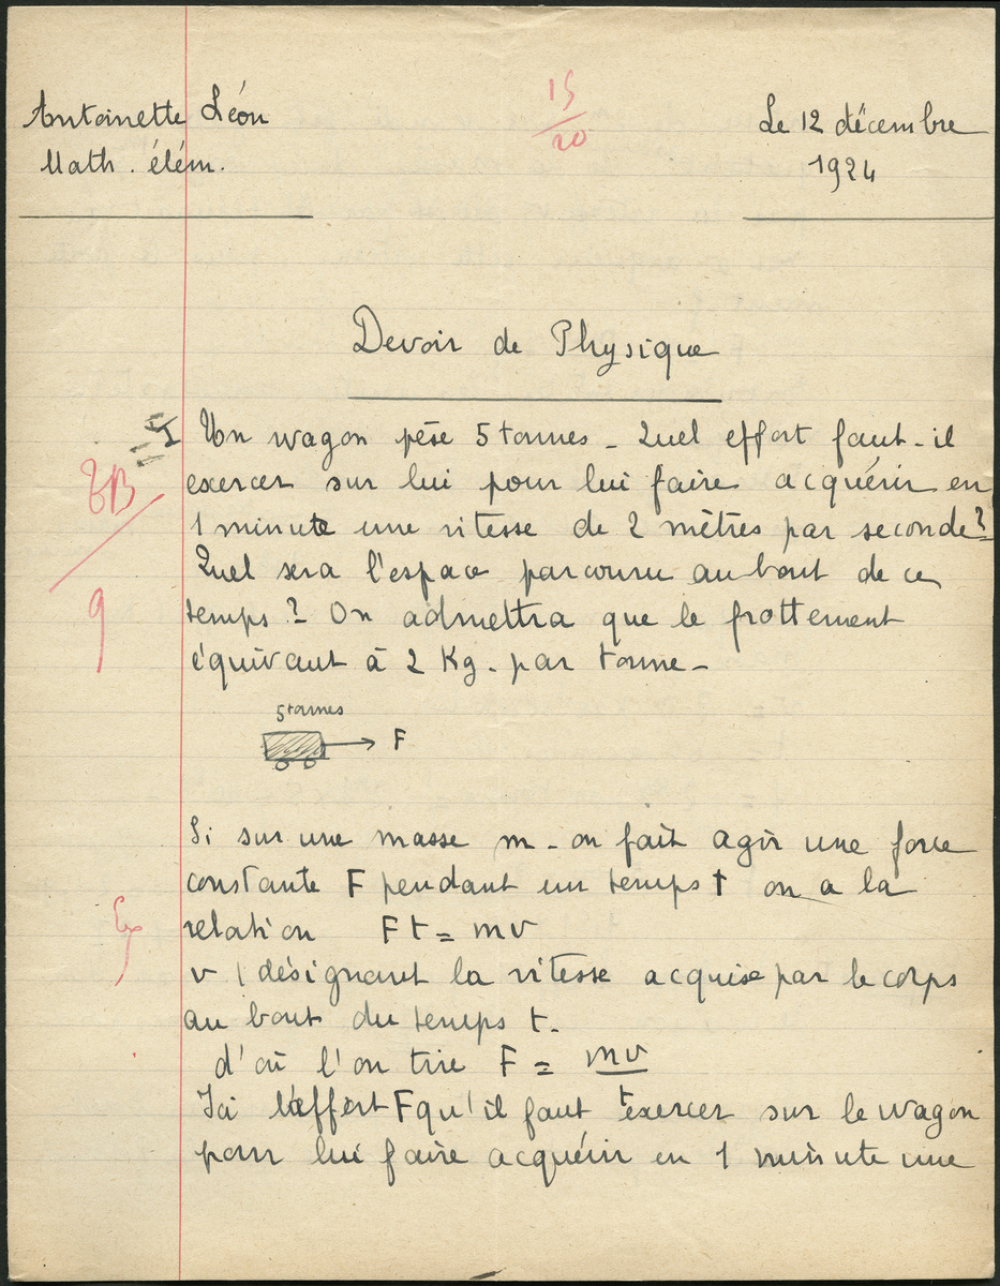 Antoinette Léon
Math. élém.
15
20
Le 12 décembre
1924
Devoir de Physique
I Un wagon pèse 5 tonnes - Quel effort faut-il
exercer sur lui pour lui faire acquérir en
1 minute une vitesse de 2 mètres par seconde?
Quel sera l'espace parcouru au bout de ce
temps? On admettra que le frottement
équivaut à 2 Kg. par tonne -
TB
9
5 tonnes
F
Si sur une masse m - on fait agir une force
constante F pendant un temps t on a la
relation Ft = mv
v désignant la vitesse acquise par le corps
au bout du temps t.
d'où l'on tire F = mv
t
Ici l'effort F qu'il faut exercer sur le wagon
pour lui faire acquérir en 1 minute une